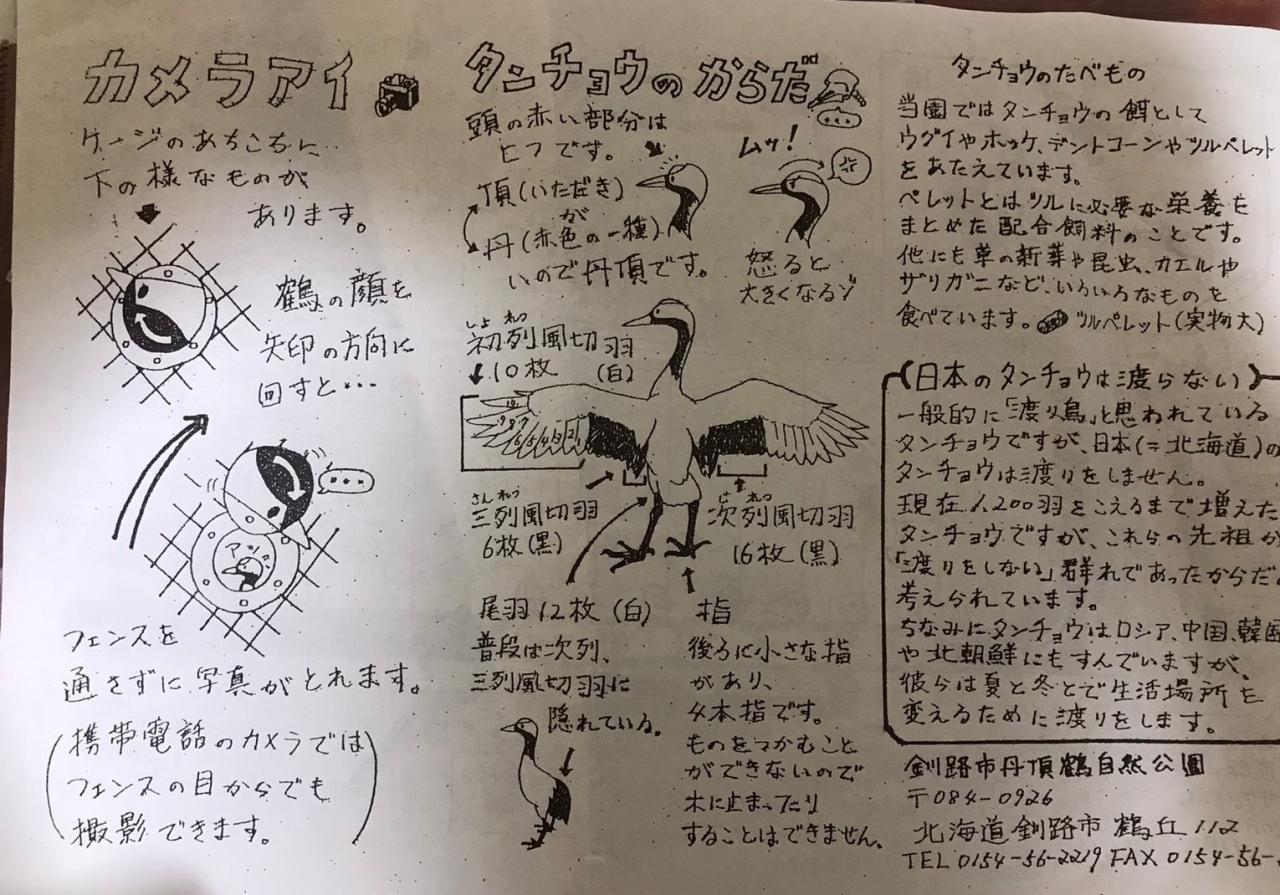 カメラアイ
ケージのあちこちに
下の様なものが
あります。
鶴の顔を
矢印の方向に
回すと…
フェンスを
通さずに写真がとれます。
(携帯電話のカメラでは
フェンスの目からでも
撮影できます。)
タンチョウのからだ
頭の赤い部分は
ヒフです。
頂(いただき)
が
丹(赤色の一種)
いので丹頂です。
ムッ!
怒ると
大きくなるゾ
しょ れつ
初列風切羽
10枚 (白)
10 9 8 7 6 5 4 3 2 1
さんれつ
三列風切羽
6枚(黒)
じ れつ
次列風切羽
16枚(黒)
尾羽12枚(白)
普段は次列、
三列風切羽に
隠れている。
指
後ろに小さな指
があり、
4本指です。
ものをつかむこと
ができないので
木に止まったり
することはできません。
タンチョウのたべもの
当園ではタンチョウの餌として
ウグイやホッケ、デントコーンやツルペレット
をあたえています。
ペレットとはツルに必要な栄養を
まとめた配合飼料のことです。
他にも草の新芽や昆虫、カエルや
ザリガニなど、いろいろなものを
食べています。 ツルペレット(実物大)
(日本のタンチョウは渡らない)
一般的に「渡り鳥」と思われている
タンチョウですが、日本(=北海道)の
タンチョウは渡りをしません。
現在1,200羽をこえるまで増えた
タンチョウですが、これらの先祖が
「渡りをしない」群れであったからだ
考えられています。
ちなみにタンチョウはロシア、中国、韓国
や北朝鮮にもすんでいますが、
彼らは夏と冬とで生活場所を
変えるために渡りをします。
釧路市丹頂鶴自然公園
〒084-0926
北海道釧路市鶴丘112
TEL 0154-56-2219 FAX 0154-56-